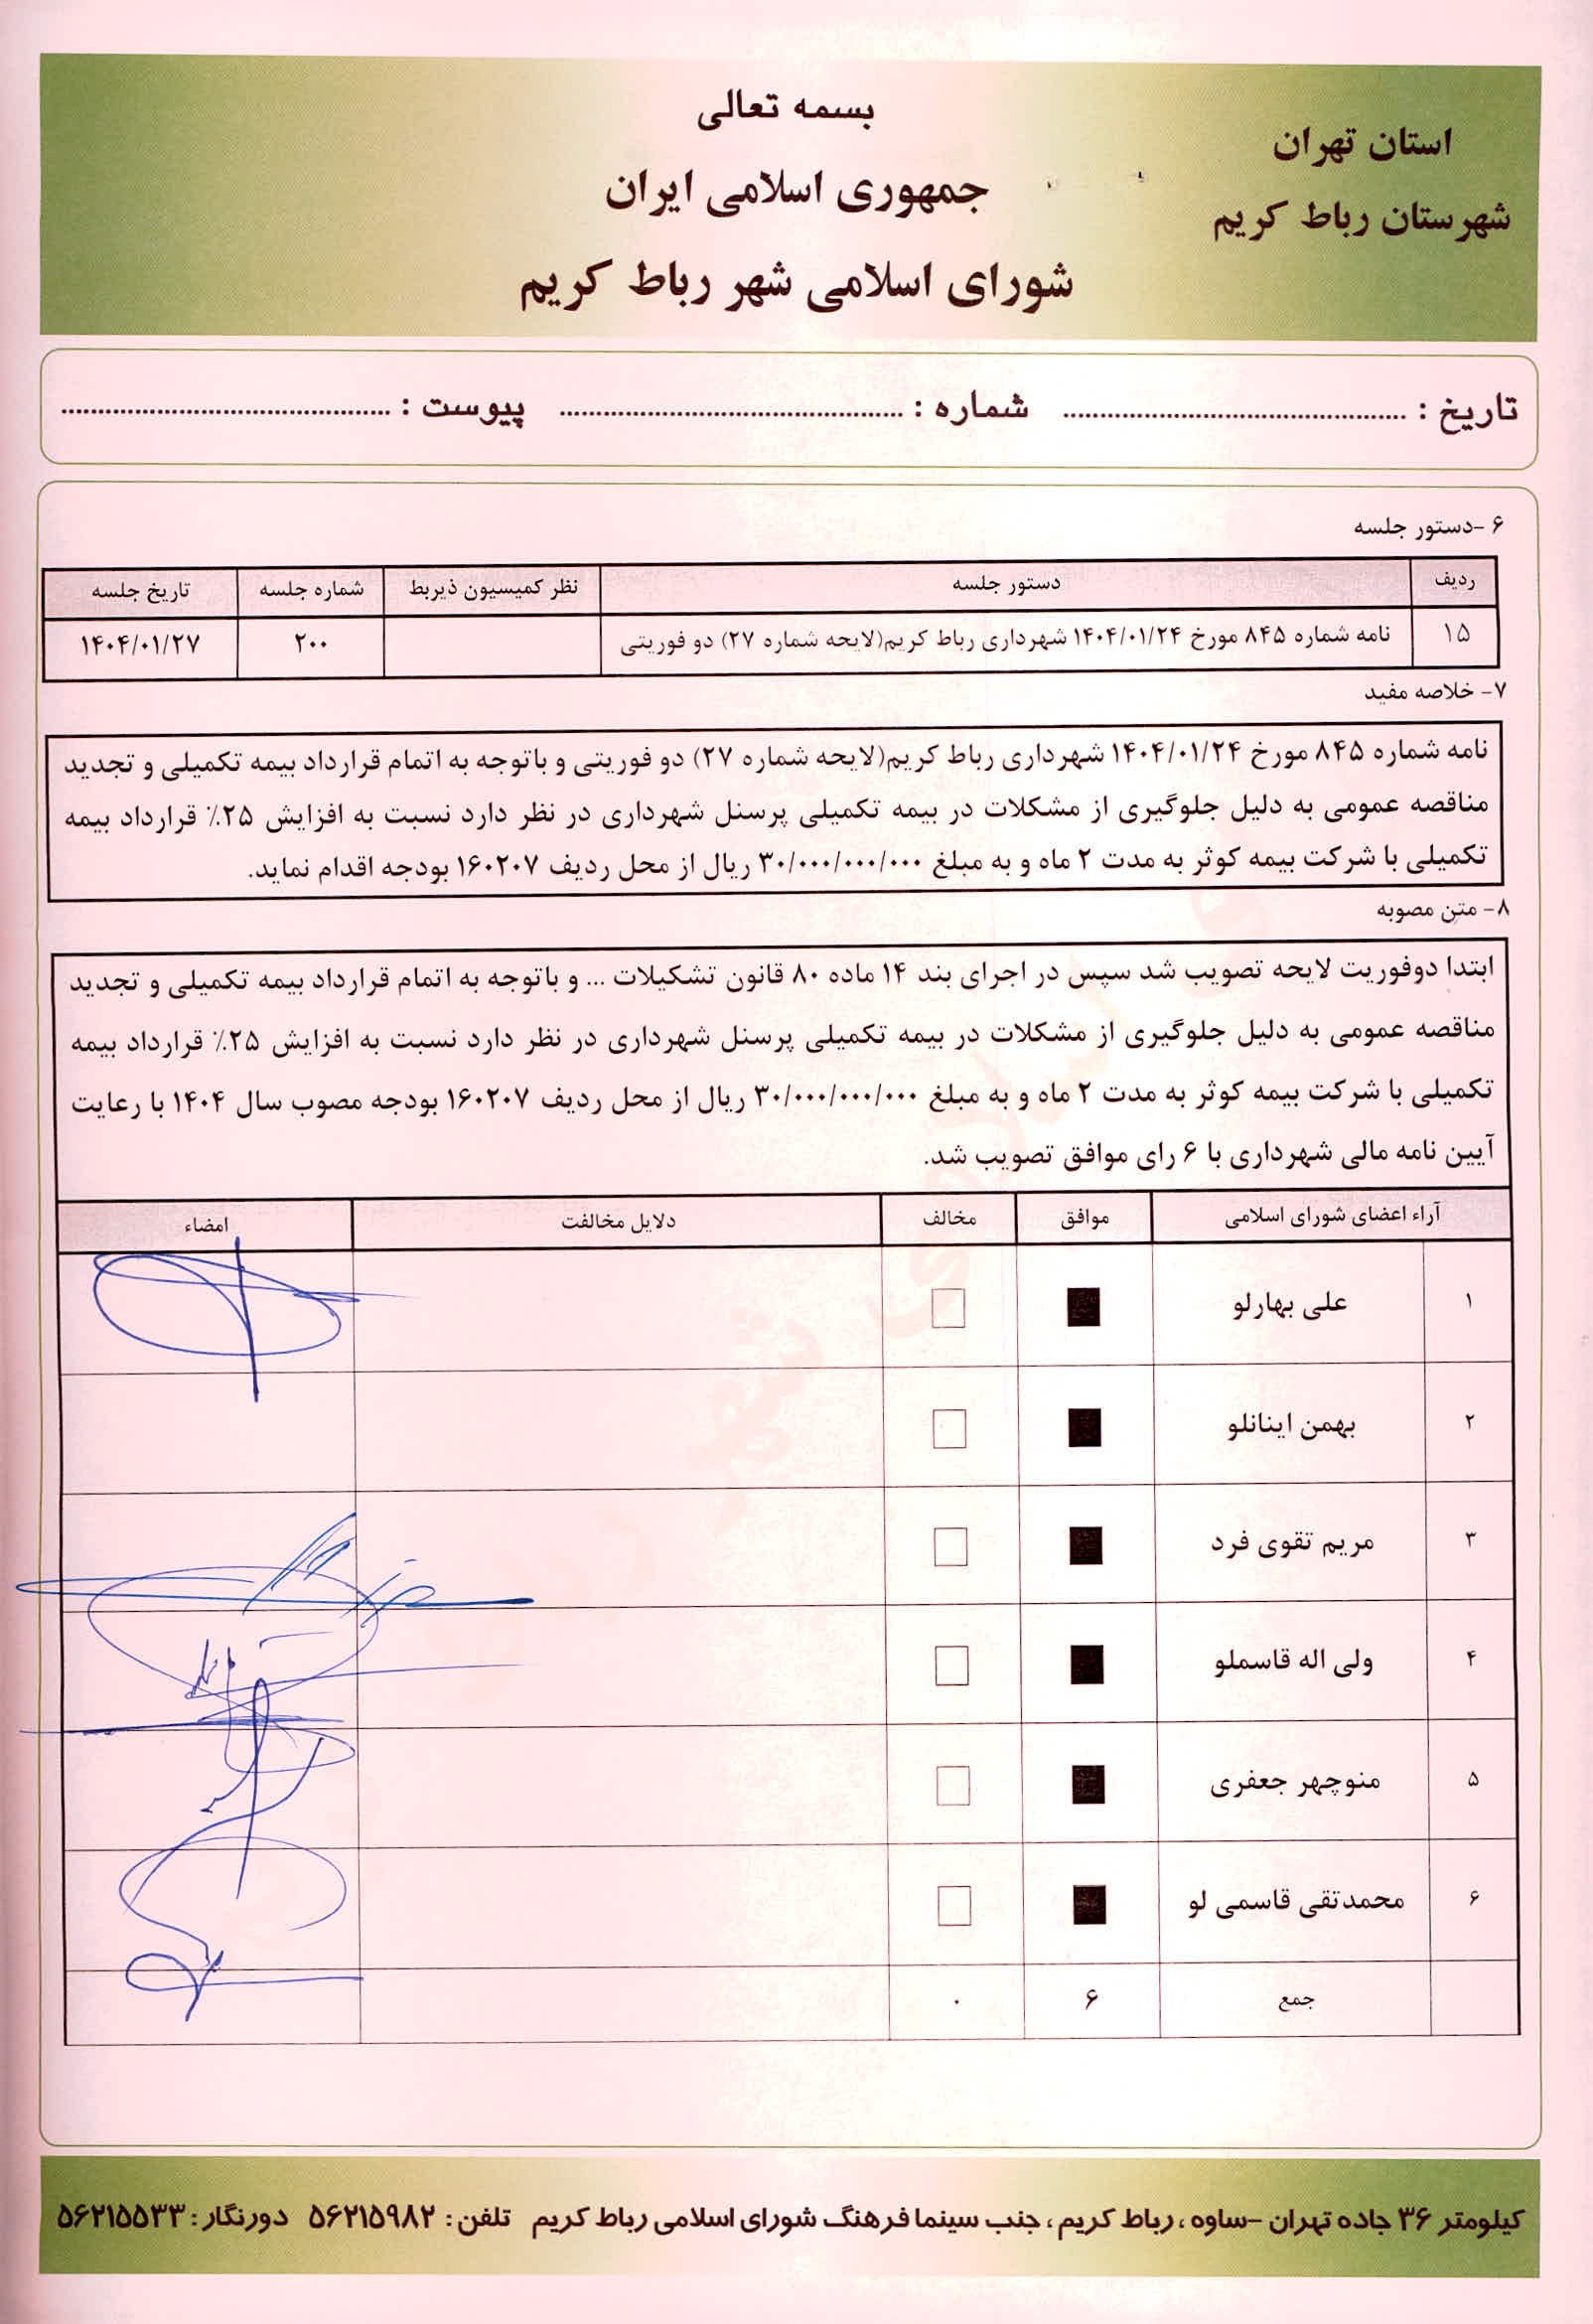 بسمه تعالی
استان تهران
جمهوری اسلامی ایران
شهرستان رباط کریم
شورای اسلامی شهر رباط کریم
تاریخ : ........ شماره : ........ پیوست : ........
۶ -دستور جلسه
ردیف دستور جلسه نظر کمیسیون ذیربط شماره جلسه تاریخ جلسه
۱۵ نامه شماره ۸۴۵ مورخ ۱۴۰۴/۰۱/۲۴ شهرداری رباط کریم(لایحه شماره ۲۷) دو فوریتی ۲۰۰ ۱۴۰۴/۰۱/۲۷
۷- خلاصه مفید
نامه شماره ۸۴۵ مورخ ۱۴۰۴/۰۱/۲۴ شهرداری رباط کریم(لایحه شماره ۲۷) دو فوریتی و باتوجه به اتمام قرارداد بیمه تکمیلی و تجدید
مناقصه عمومی به دلیل جلوگیری از مشکلات در بیمه تکمیلی پرسنل شهرداری در نظر دارد نسبت به افزایش ۲۵٪ قرارداد بیمه
تکمیلی با شرکت بیمه کوثر به مدت ۲ ماه و به مبلغ ۳۰/۰۰۰/۰۰۰/۰۰۰ ریال از محل ردیف ۱۶۰۲۰۷ بودجه اقدام نماید.
۸- متن مصوبه
ابتدا دوفوریت لایحه تصویب شد سپس در اجرای بند ۱۴ ماده ۸۰ قانون تشکیلات ... و باتوجه به اتمام قرارداد بیمه تکمیلی و تجدید
مناقصه عمومی به دلیل جلوگیری از مشکلات در بیمه تکمیلی پرسنل شهرداری در نظر دارد نسبت به افزایش ۲۵٪ قرارداد بیمه
تکمیلی با شرکت بیمه کوثر به مدت ۲ ماه و به مبلغ ۳۰/۰۰۰/۰۰۰/۰۰۰ ریال از محل ردیف ۱۶۰۲۰۷ بودجه مصوب سال ۱۴۰۴ با رعایت
آیین نامه مالی شهرداری با ۶ رای موافق تصویب شد.
آراء اعضای شورای اسلامی موافق مخالف دلایل مخالفت امضاء
۱ علی بهارلو ■ □
۲ بهمن اینانلو ■ □
۳ مریم تقوی فرد ■ □
۴ ولی اله قاسملو ■ □
۵ منوچهر جعفری ■ □
۶ محمدتقی قاسمی لو ■ □
جمع ۶ ۰
کیلومتر ۳۶ جاده تهران -ساوه ، رباط کریم ، جنب سینما فرهنگ شورای اسلامی رباط کریم تلفن : ۵۶۲۱۵۹۸۲ دورنگار : ۵۶۲۱۵۵۳۳